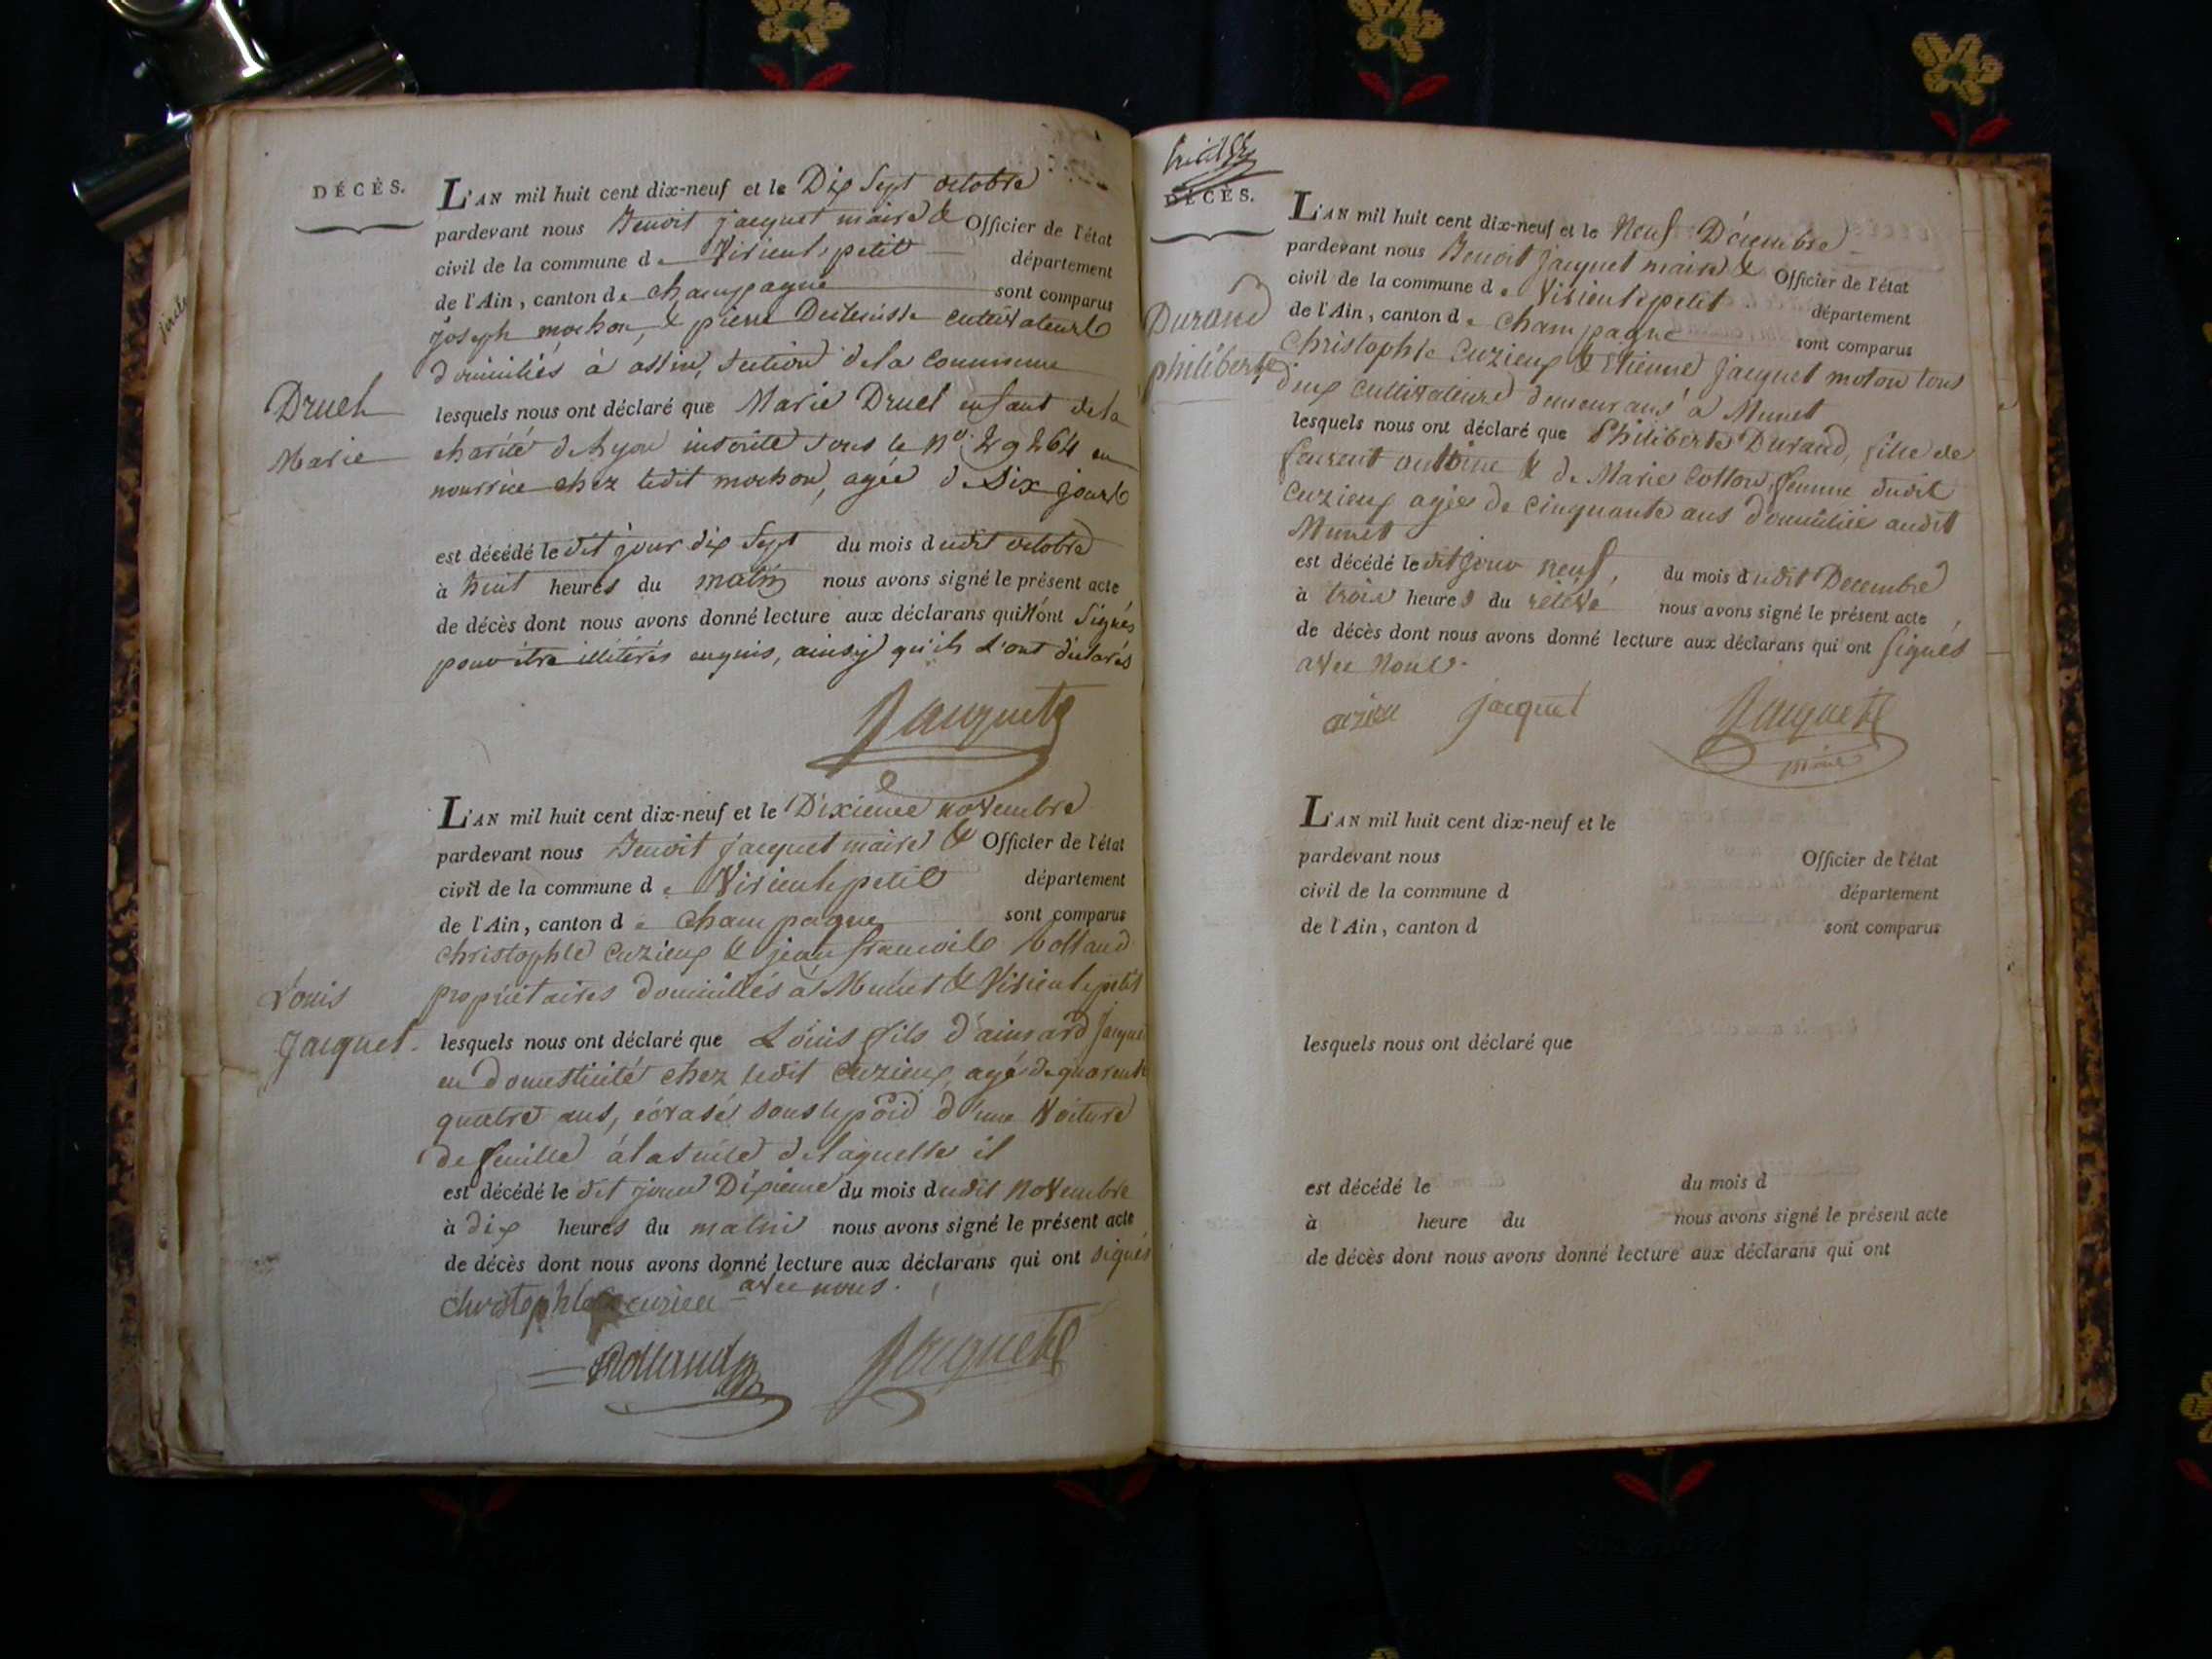 DÉCÈS.
L'AN mil huit cent dix-neuf et le Dix Sept octobre
pardevant nous Benoit jacquet maire & Officier de l'état
civil de la commune de Virieu le petit département
de l'Ain, canton de champagne sont comparus
joseph mochon, & pierre cultivateurs
domiciliés à assin, section de la Commune
Druet
Marie
lesquels nous ont déclaré que Marie Druet enfant de la
charité de Lyon inscrite sous le N° 29264 en
nourrice chez ledit mochon, agée de Six jours
est décédé le dit jour dix Sept du mois dudit octobre
à huit heures du matin nous avons signé le présent acte
de décès dont nous avons donné lecture aux déclarans qui N'ont Signés
pour être illiterés enquis, ainsy qu'ils L'ont déclarés
Jacquet
L'AN mil huit cent dix-neuf et le Dixieme novembre
pardevant nous Benoit jacquet maire & Officier de l'état
civil de la commune de Virieu le petit département
de l'Ain, canton de champagne sont comparus
christophle cuzieux & jean francois rolland
propriétaires domiciliés à Munet & Virieu le petit
Louis
Jacquet.
lesquels nous ont déclaré que Louis fils d'aimard jacquet
en domesticité chez ledit cuzieux, agé de quarente
quatre ans, écrasé sous le poid d'une Voiture
de feuille à la suite de laquelle il
est décédé le dit jour Dixieme du mois dudit Novembre
à dix heures du matin nous avons signé le présent acte
de décès dont nous avons donné lecture aux déclarans qui ont signés
avec nous.
christophle cuzieu
Rolland Jacquet
DÉCÈS.
L'AN mil huit cent dix-neuf et le Neuf Décembre
pardevant nous Benoit jacquet maire & Officier de l'état
civil de la commune de Virieu le petit département
de l'Ain, canton de Champagne sont comparus
Christophle Cuzieux & Etienne jacquet moton tous
deux cultivateurs demeurans à Munet
Durand
philiberte
lesquels nous ont déclaré que Philiberte Durand, fille de
feu antoine & de Marie Cotton, femme dudit
Cuzieux agée de Cinquante ans domiciliée audit
Munet
est décédé le dit jour neuf, du mois dudit Decembre
à trois heures du relevé nous avons signé le présent acte
de décès dont nous avons donné lecture aux déclarans qui ont signés
avec Nous.
cuzieu jacquet Jacquet
maire
L'AN mil huit cent dix-neuf et le
pardevant nous Officier de l'état
civil de la commune d département
de l'Ain, canton d sont comparus
lesquels nous ont déclaré que
est décédé le du mois d
à heure du nous avons signé le présent acte
de décès dont nous avons donné lecture aux déclarans qui ont